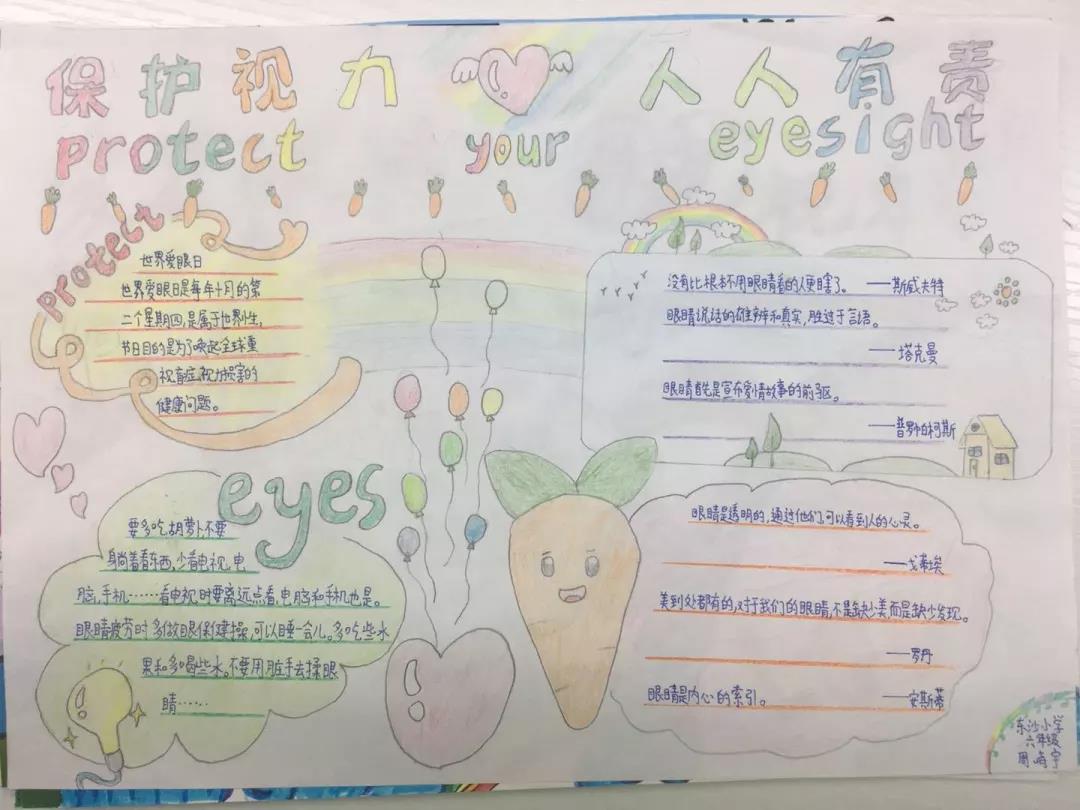 保护视力 人人有责
protect your eyesight
protect
世界爱眼日
世界爱眼日是每年十月的第
二个星期四,是属于世界性,
节日目的是为了唤起全球重
视盲症,视力损害的
健康问题。
没有比根本不用眼睛看的人更瞎了。——斯威夫特
眼睛说话的雄辨和真实,胜过于言语。
——塔克曼
眼睛首先是宣布爱情故事的前驱。
——普罗帕柯斯
eyes
要多吃胡萝卜,不要
躺着看东西,少看电视,电
脑,手机……看电视时要离远点看,电脑和手机也是。
眼睛疲劳时多做眼保健操,可以睡一会儿。多吃些水
果和多喝些水。不要用脏手去揉眼
睛……
眼睛是透明的,通过他们,可以看到人的心灵。
——戈蒂埃
美到处都有的,对于我们的眼睛,不是缺少美而是缺少发现。
——罗丹
眼睛是内心的索引。——安斯蒂
东沙小学
六年级
周 宇